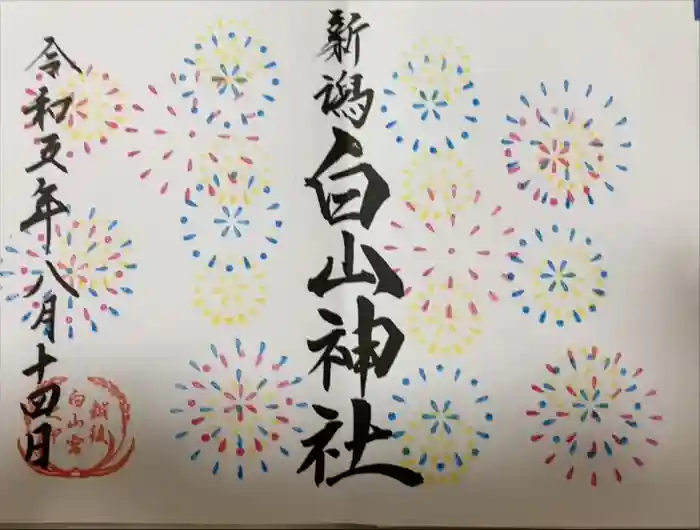 新潟白山神社
令和五年八月十四日
越後
白山宮